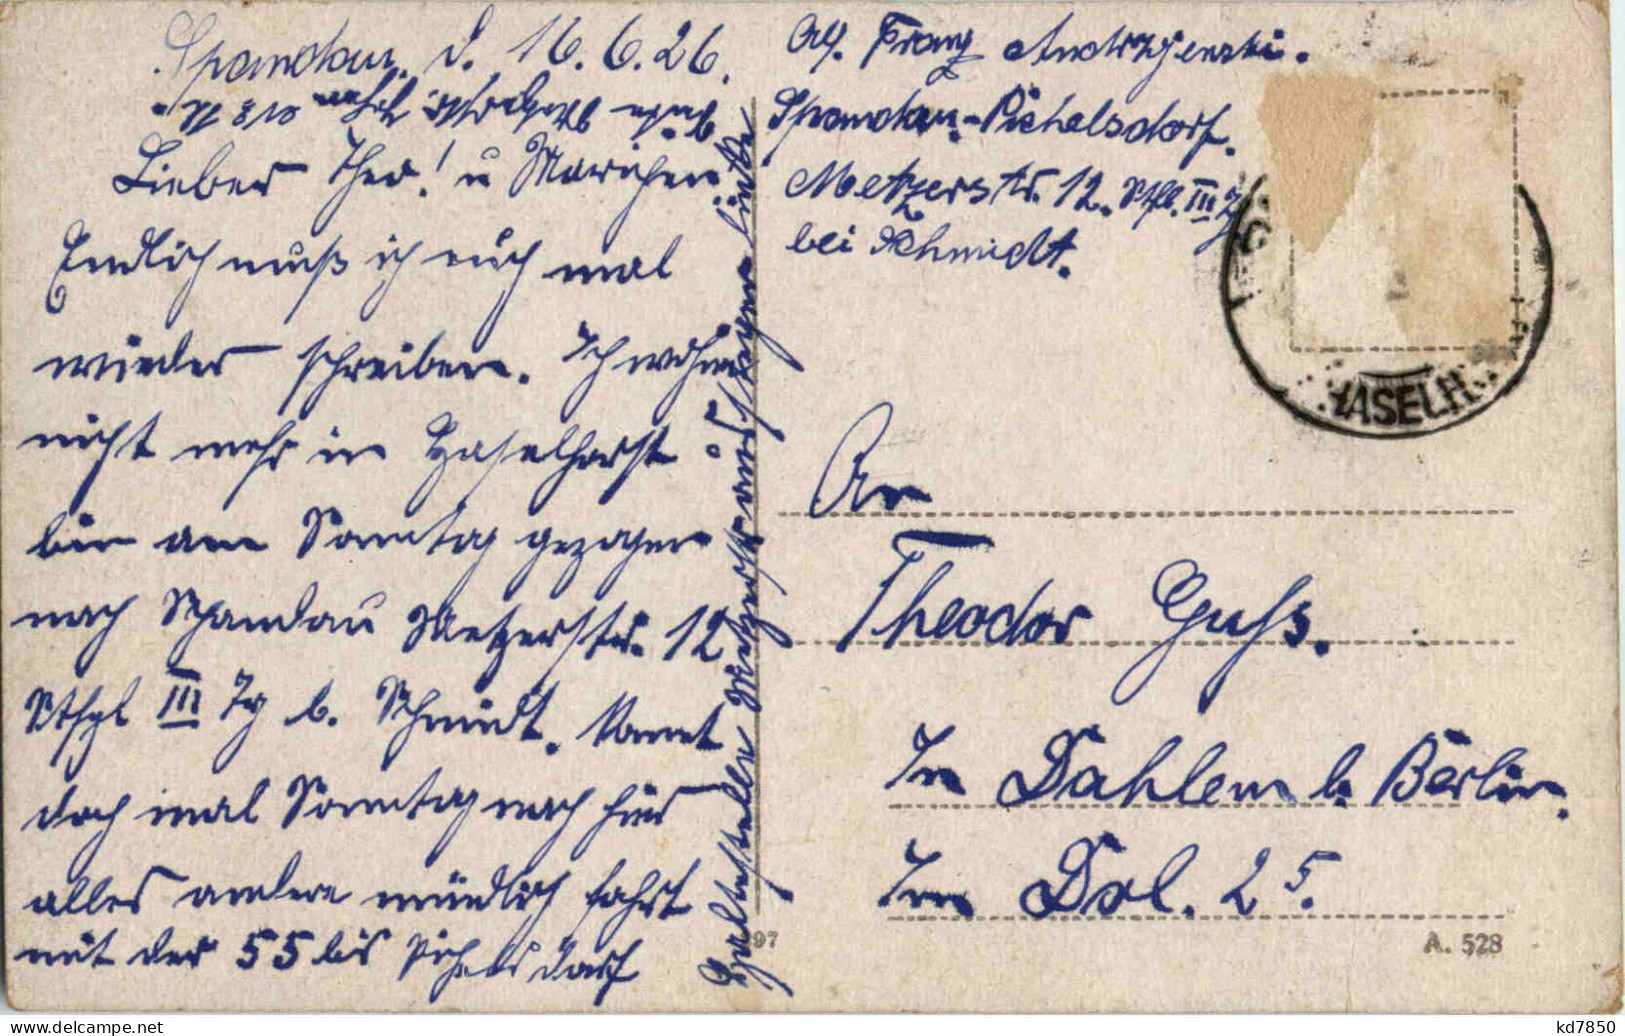 Spandau. d. 16.6.26.
Lieber Theo! u Mariechen
Endlich muß ich euch mal
wieder schreiben. Ich wohne
nicht mehr in Haselhorst
bin am Sonntag gezogen
nach Spandau Metzerstr. 12
Stfgl III Tg b. Schmidt. kommt
doch mal Sonntag nach hier
alles andere mündlich fahrt
mit der 55 bis Pichelsdorf
Haltestelle Metzerstr
Franz
Spandau-Pichelsdorf.
Metzerstr. 12. Stfl. III
bei Schmidt.
HASELH
An
Theodor Guss.
In Dahlem b. Berlin.
In Dol. 25.
97
A. 528
kd7850